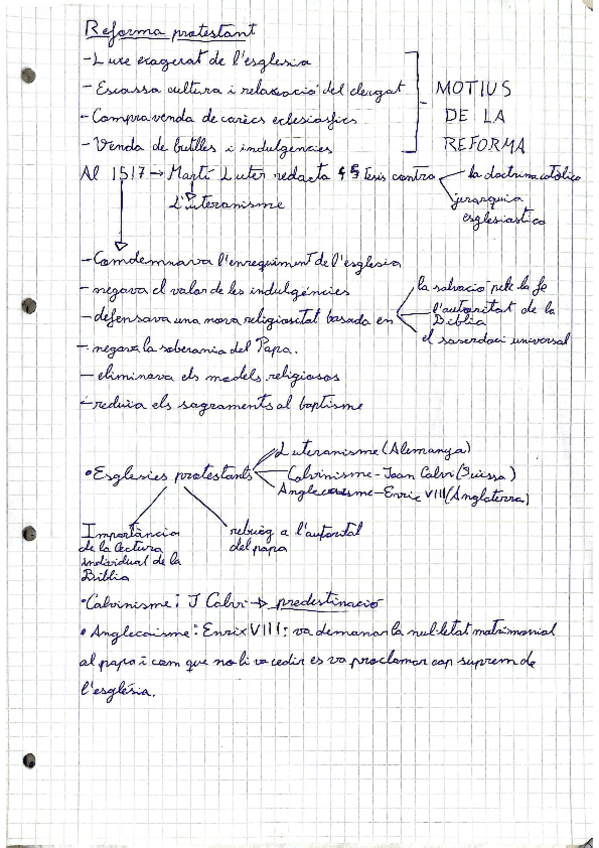 Reforma protestant
- Luxe exagerat de l'esglesia
- Escassa cultura i relaxació del clergat
- Compravenda de carècs eclesiasfics
- Venda de butlles i indulgències
MOTIUS
DE LA
REFORMA
Al 1517 → Martí Luter redacta 95 tesis contra
la doctrina catòlica
jerarquia
esglesiastica
L'uteranisme
- Comdemnava l'enrequiment de l'esglesia
- negava el valor de les indulgéncies
- defensava una nova religiositat basada en
la salvació per la fe
l'autoritat de la
Biblia
el saserdoci universal
- negava la soberania del Papa.
- eliminava els models religiosos
- reduïa els sagraments al baptisme
• Esglesies protestants
Luteranisme (Alemanya)
Calvinisme - Joan Calvi (Suissa)
Anglecanisme - Enric VIII (Anglaterra)
Importància
de la lectura
individual de la
Biblia
rebuig a l'autoritat
del papa
• Calvinisme: J Calvi → predestinació
• Anglecaisme: Enrix VIII: va demanar la nul·letat matrimonial
al papa i com que no li va cedir es va proclamar cap suprem de
l'església.